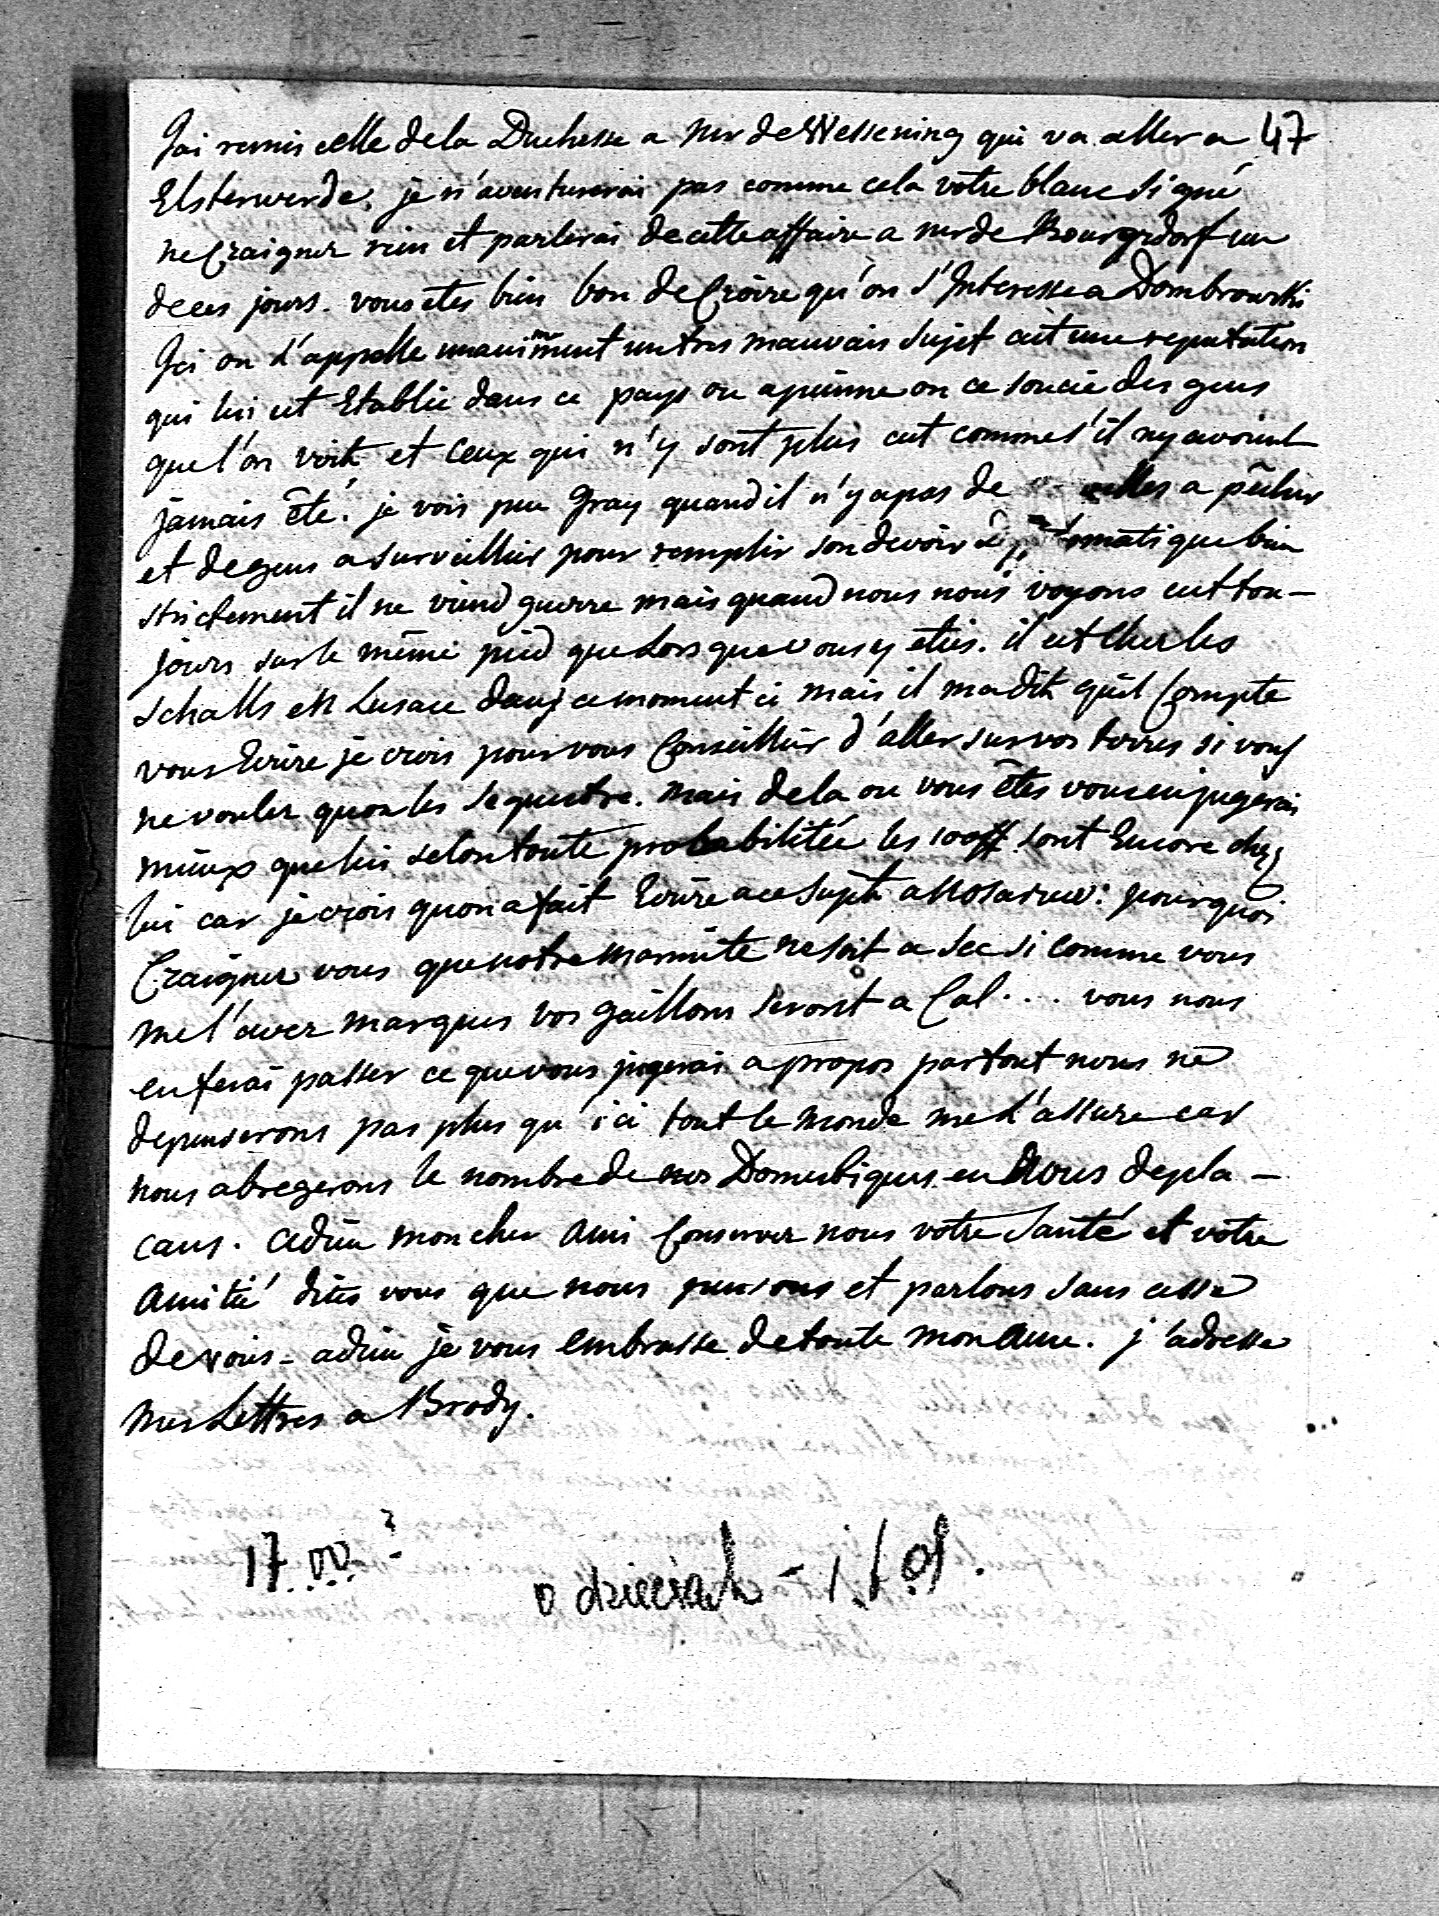 J'ai remis celle de la Duchesse a Mr de Wessening qui va aller a 47
Elsterwerde. je n'aventurerai pas comme cela votre blanc signé
ne Craigner rien et parlerai de cette affaire a mr de Bourgsdorf un
de ces jours. vous etes bien bon de Croire qu'on s'Interesse a Dombrowski
Ici on l'appelle unanimment un tres mauvais sujet c'ét une reputation
qui lui ét Etablie dans ce pays ou a peinne on ce soucie des gens
que l'on voit et ceux qui n'y sont plus cét comme s'il ny avoint
jamais été. je vois peu Gray quand il n'y a pas de elles a pêcher
et de gens a surveillier pour remplir son devoir bien
strictement il ne viend guerre mais quand nous nous voyons cét tou-
jours sur le même pied que Lorsque vous y eties. il ét Cher les
Schalls en Lusace dans ce moment ci mais il ma dit qu'il Compte
vous Ecrire je crois pour vous Conseillier d'aller sur vos terres si vous
ne vouler quon les sequestre. mais de la ou vous êtes vous en jugerai
mieux que lui selon toute probabilitée les 100ff sont Encore chez
lui car je crois quon a fait Ecrire a ce sujet a : pourquoi
Craigner vous que notre marmite ne soit a sec si comme vous
me l'aver marques vos gaillons seront a Cal... vous nous
en ferai passer ce que vous jugerai a propos partout nous ne
depenserons pas plus qu'ici tout le monde me l'assure car
nous abregerons le nombre de nos Domestiques en Nous depla-
cans. adieu mon cher Ami Conserver nous votre Santé et votre
Amitié dites vous que nous pensons et parlons sans cesse
de vous - adieu je vous embrasse de toute mon Ame. j'adresse
Mes Lettres a Brody.
17..00..?
o dzieciach - i t.d.